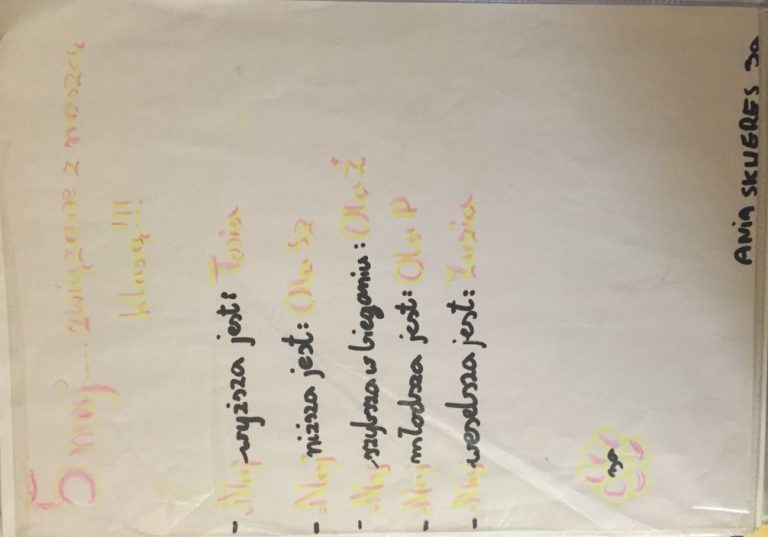 5 naj.... związane z naszą
klasą!!!
- Najwyższa jest: Tosia
- Najniższa jest: Ola Sz
- Najszybsza w bieganiu: Ola Ż
- Najmłodsza jest: Ola P
- Najweselsza jest: Zuzia
3a
ANIA SKWERES 3a